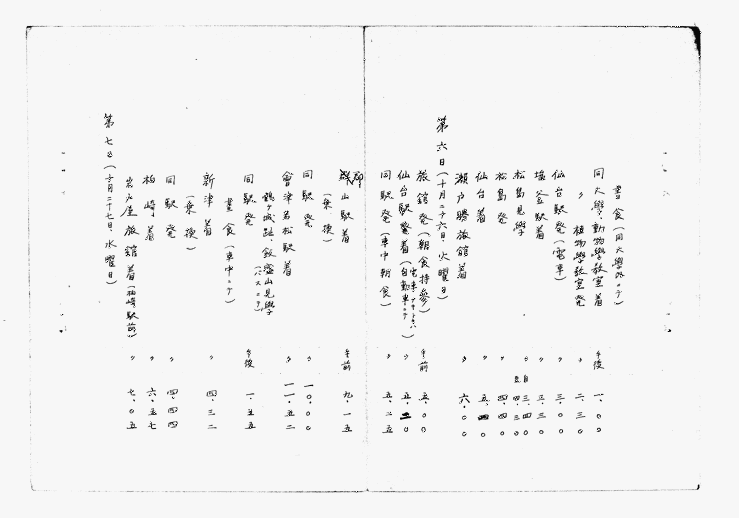 晝食(同大學內ニテ)
同大學動物學敎室着 午後 一.〇〇
〃 植物學敎室発 〃 二.三〇
仙台駅発(電車) 〃 三.〇〇
塩釜駅着 〃 三.三〇
松島見學
松島発 〃 四.四〇
仙台着 〃 五.四〇
瀬戸勝旅館着 〃 六.〇〇
第六日(十月二十六日、火曜日)
旅館発(朝食持參) 午前 五.〇〇
仙台駅着(自動車ニテ) 〃 五.二〇
同駅発(車中朝食) 〃 五.二五
郡山駅着 午前 九.一五
(乗換)
同駅発 〃 一〇.〇〇
會津若松駅着 〃 一一.五二
鶴ヶ城趾、飯盛山見學
(バスニテ)
同駅発 午後 一.五五
晝食(車中ニテ)
新津着 〃 四.三二
(乗換)
同駅発 〃 四.四四
柏崎着 〃 六.五七
岩戸屋旅館着(柏崎駅前) 〃 七.〇五
第七日(十月二十七日、水曜日)